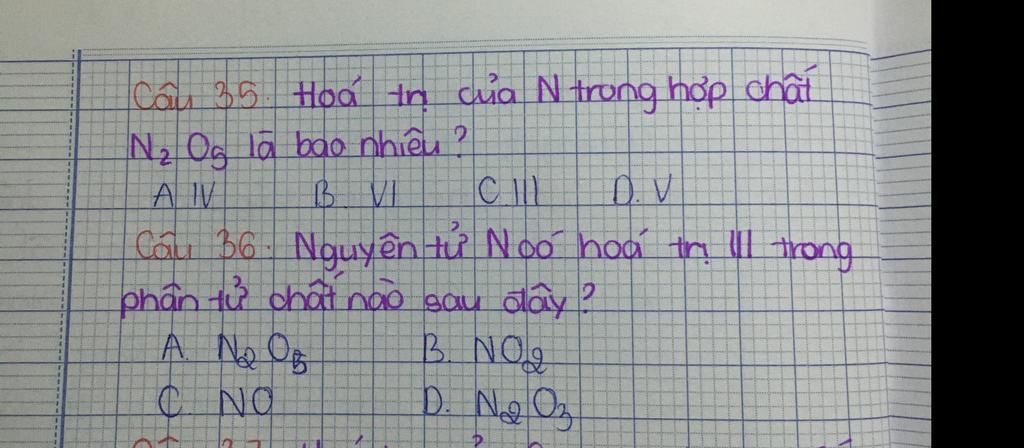 Câu 35. Hoá trị của N trong hợp chất
N₂O₅ là bao nhiêu?
A. IV B. VI C. III D. V
Câu 36. Nguyên tử N có hoá trị III trong
phân tử chất nào sau đây?
A. N₂O₅ B. NO₂
C. NO D. N₂O₃